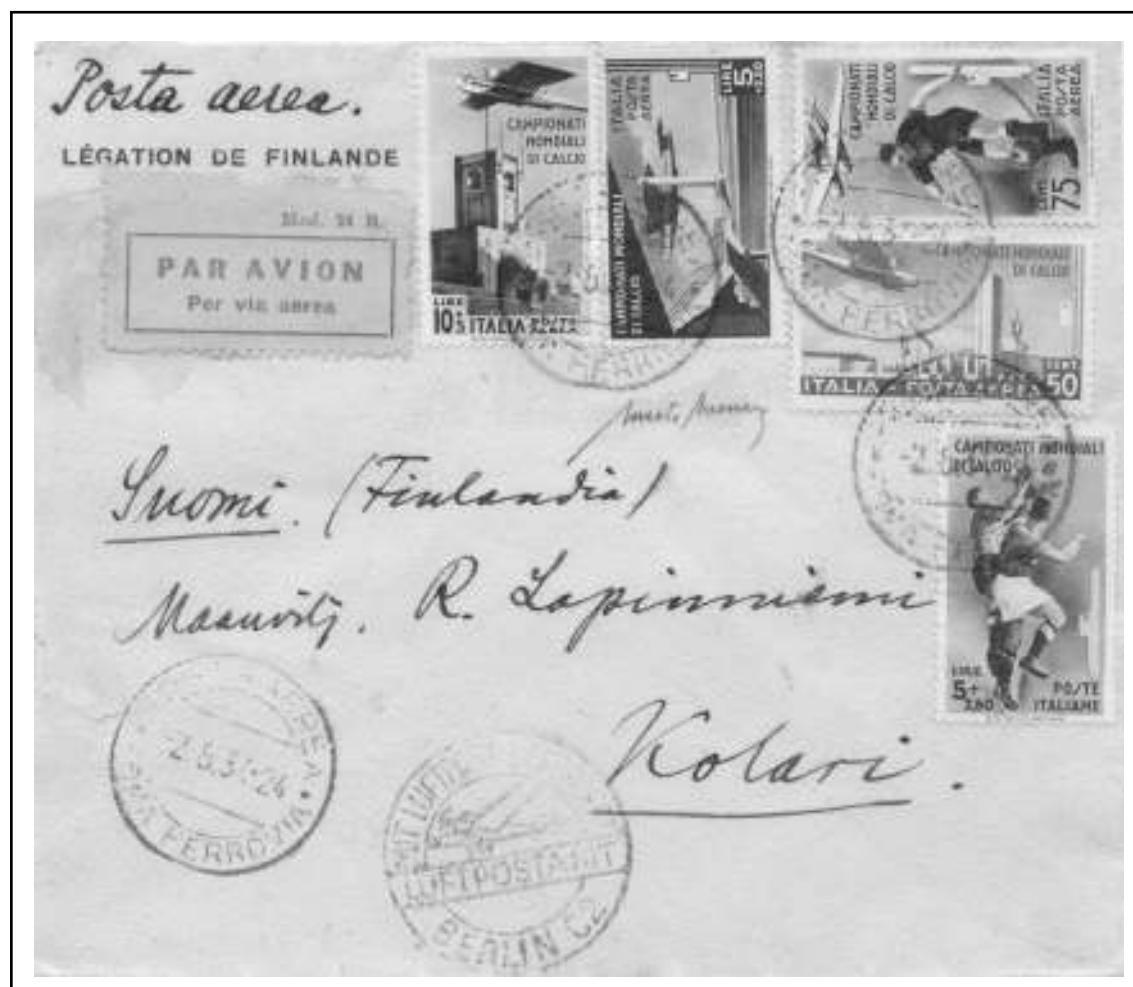 Posta aerea.
LÉGATION DE FINLANDE
Mod. 24 B.
PAR AVION
Per via aerea
CAMPIONATI
MONDIALI
DI CALCIO
LIRE
10+5 ITALIA POSTA AEREA
LIRE 5
ITALIA
POSTA
AEREA
CAMPIONATI MONDIALI
DI CALCIO
CAMPIONATI
MONDIALI
DI CALCIO
ITALIA
POSTA
AEREA
CENT 75
CAMPIONATI MONDIALI
DI CALCIO
ITALIA - POSTA AEREA
CENT 50
CAMPIONATI MONDIALI
DI CALCIO
LIRE
5+
2,50
POSTE
ITALIANE
FERROVIA
Suomi. (Finlandia)
Maanvilj. R. Lapinniemi
Kolari.
FERROVIA
MIT LUFTPOST
LUFTPOSTAMT
BERLIN C2